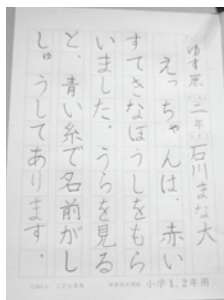 ゆす原 二年 石川まな大
えっちゃんは、赤い
すてきなぼうしをもら
いました。うらを見る
と、青い糸で名前がし
しゅうしてあります。
小学1.2年用